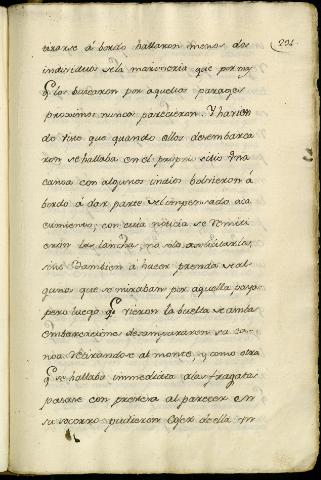 291
tirarse á bordo hallaron menos dos
individuos de la marineria que por mas
q.e los buscaron por aquellos parages
proximos nunca parecieron. Y havien
do visto que quando ellos desembarca
ron se hallaba en el propio sitio una
canoa con algunos indios bolvieron á
bordo á dar parte del impensado aca
ecimiento; con cuia noticia se remiti
eron las lanchas, no solo a solicitarlos,
sino tambien á hacer prenda de al
gunos que se miraban por aquella playa
pero luego q.e vieron la buelta de ambas
embarcaciones desampararon su ca
noa retirandose al monte, y como otra
q.e se hallaba immediata a las fragatas
pasase con presteza al parecer en
su socorro pudieron coger de ella un